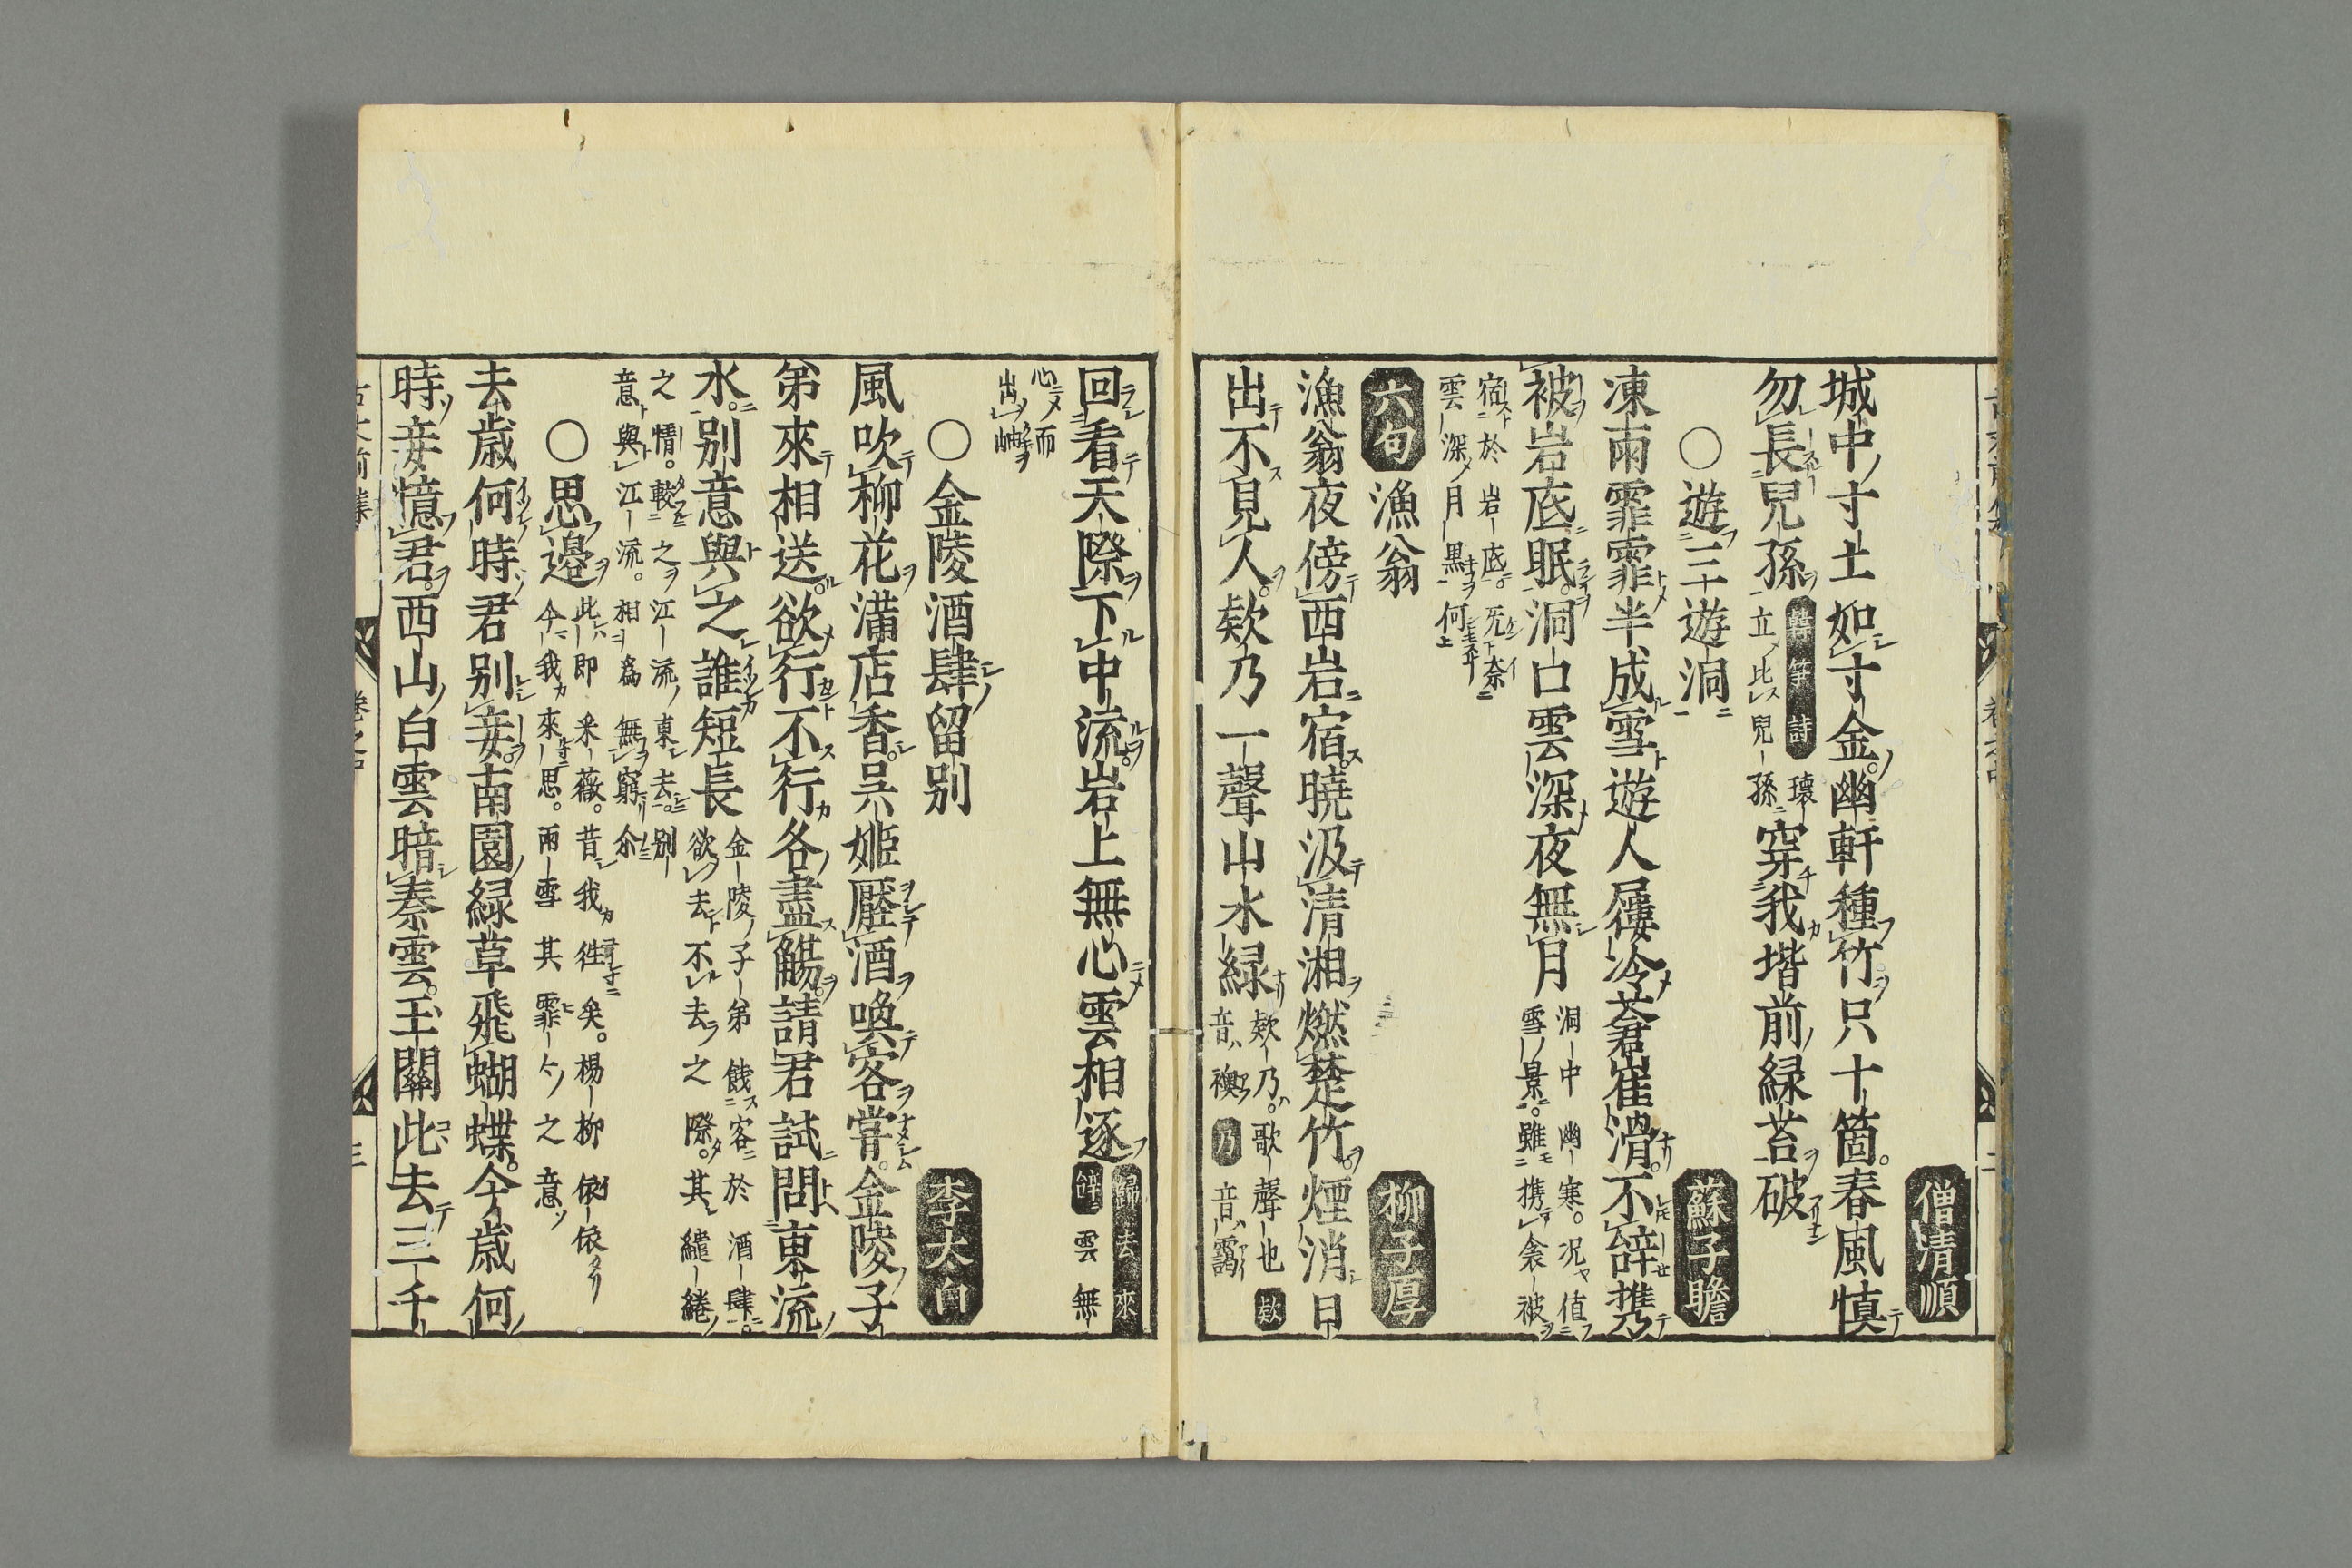 僧清順
城中寸土如寸金幽軒種竹只十箇春風慎
勿長兒孫韓笋詩環立比兒孫穿我堦前緑苔破
〇遊三遊洞 蘇子瞻
凍雨霏霏半成雪遊人屨冷蒼崖滑不辞携
被岩底眠洞口雲深夜無月洞中幽寒况值
雪景雖携衾被
宿於岩底旡奈
雲深月黒何
六句 漁翁 柳子厚
漁翁夜傍西岩宿暁汲清湘燃楚竹煙消日
出不見人欸乃一聲山水緑欸乃歌聲也欸
音襖乃音靄
回看天際下中流岩上無心雲相逐歸去來
辭雲無
心而
出岫
〇金陵酒肆留别 李太白
風吹柳花滿店香呉姫壓酒喚客嘗金陵子
弟來相送欲行不行各盡觴請君試問東流
水别意與之誰短長金陵子弟餞客於酒肆
欲去不去之際其繾綣
之情較之江流東去别
意與江流相爲無窮尒
〇思邉此即采薇昔我徃矣楊柳依依
今我來思雨雪其霏之意
去歳何時君别妾南園緑草飛蝴蝶今歳何
時妾憶君西山白雲暗秦雲玉關此去三千